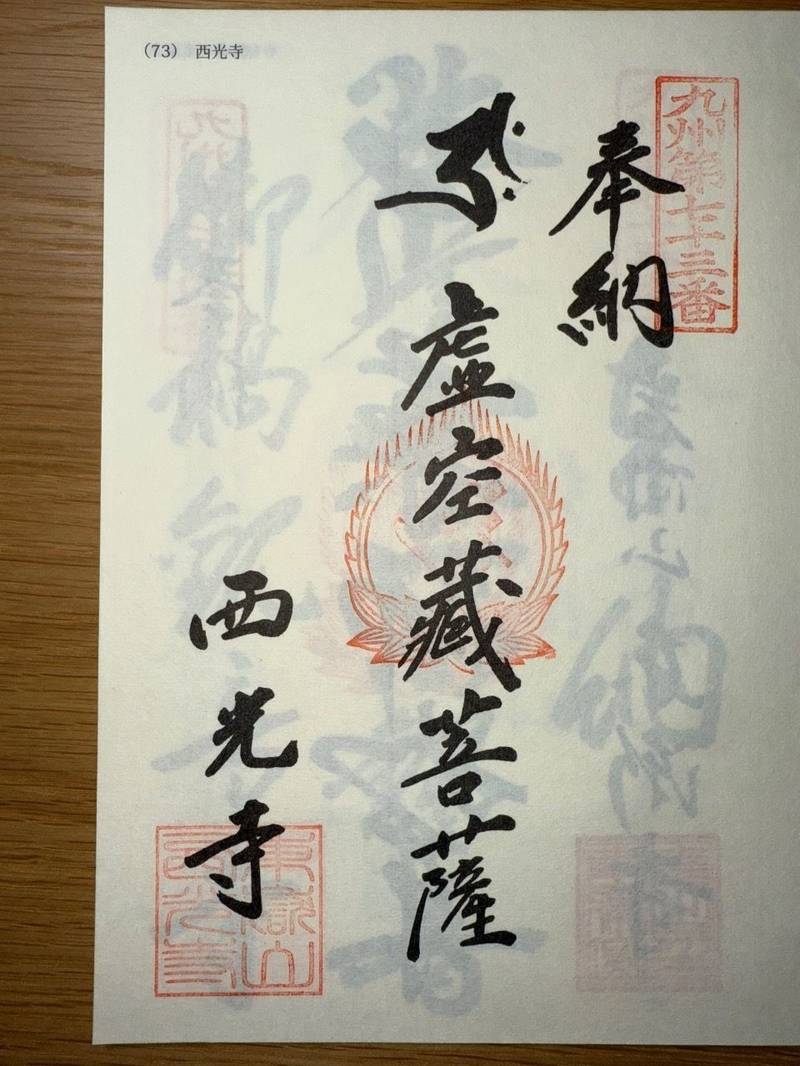 (73) 西光寺
九州第七十三番
奉納
虚空藏菩薩
西光寺